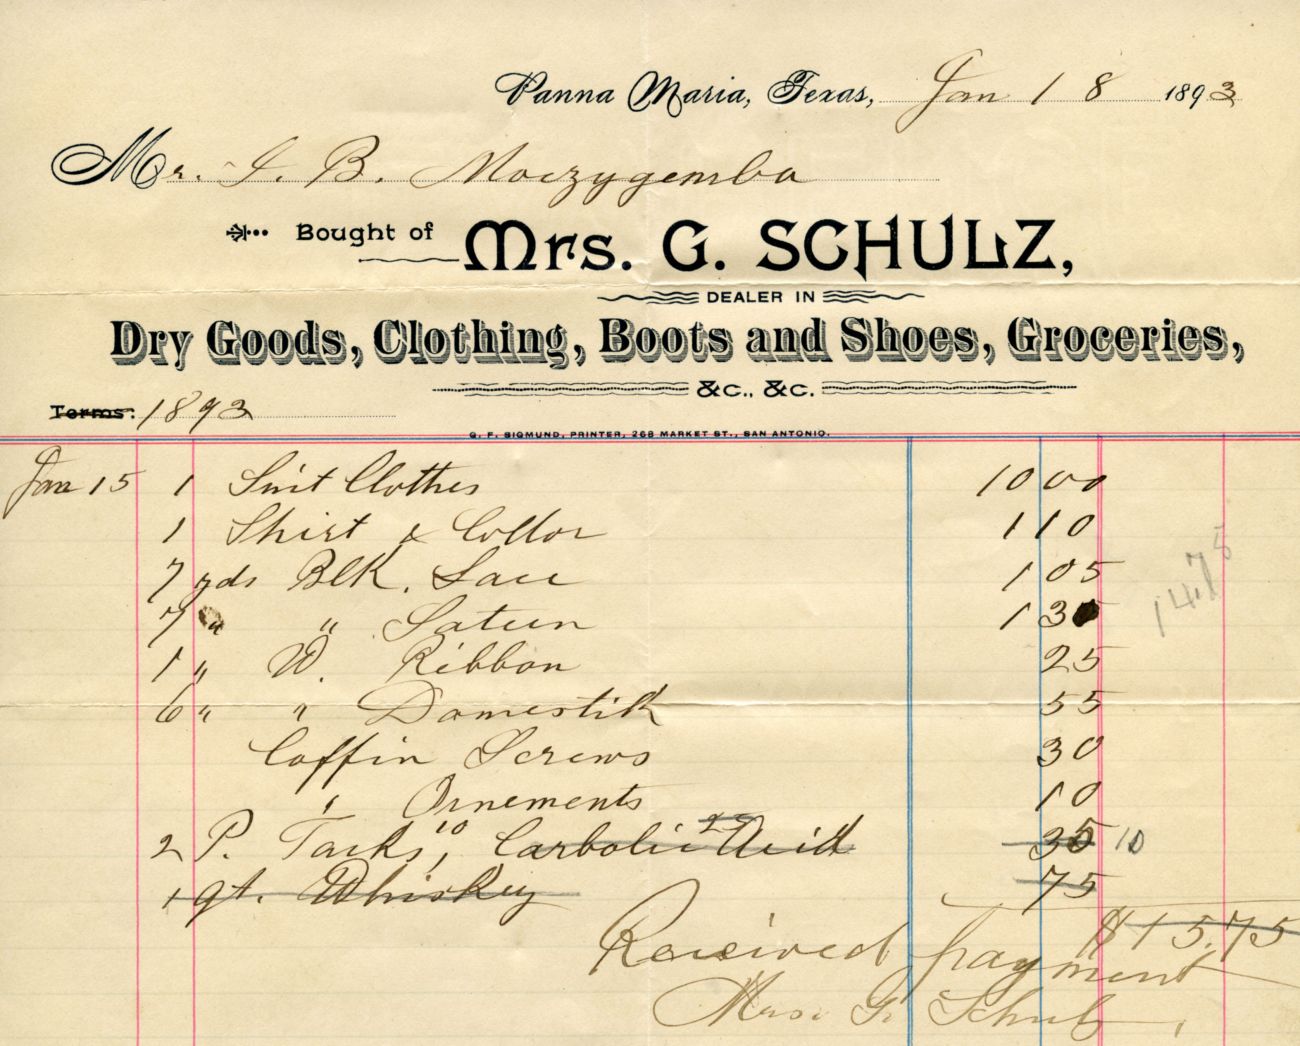 Panna Maria, Texas, Jan 18 1893
Mr. J. B. Moczygemba
Bought of Mrs. G. SCHULZ,
DEALER IN
Dry Goods, Clothing, Boots and Shoes, Groceries,
&c., &c.
Terms: 1893
G. F. SIGMUND, PRINTER, 268 MARKET ST., SAN ANTONIO.
Jan 15 1 Suit Clothes 10 00
1 Shirt & Collor 1 10
7 yds Blk. Lace 1 05
7 " " Sateen 1 35
1 " W. Ribbon 25
6 " " Domestik 55
Coffin Screws 30
" Ornements 10
2 P. Tacks, 10 Carbolic Acid 25 35 10
1 qt. Whiskey 75
14.75
$15.75
Received payment
Mrs. G. Schulz